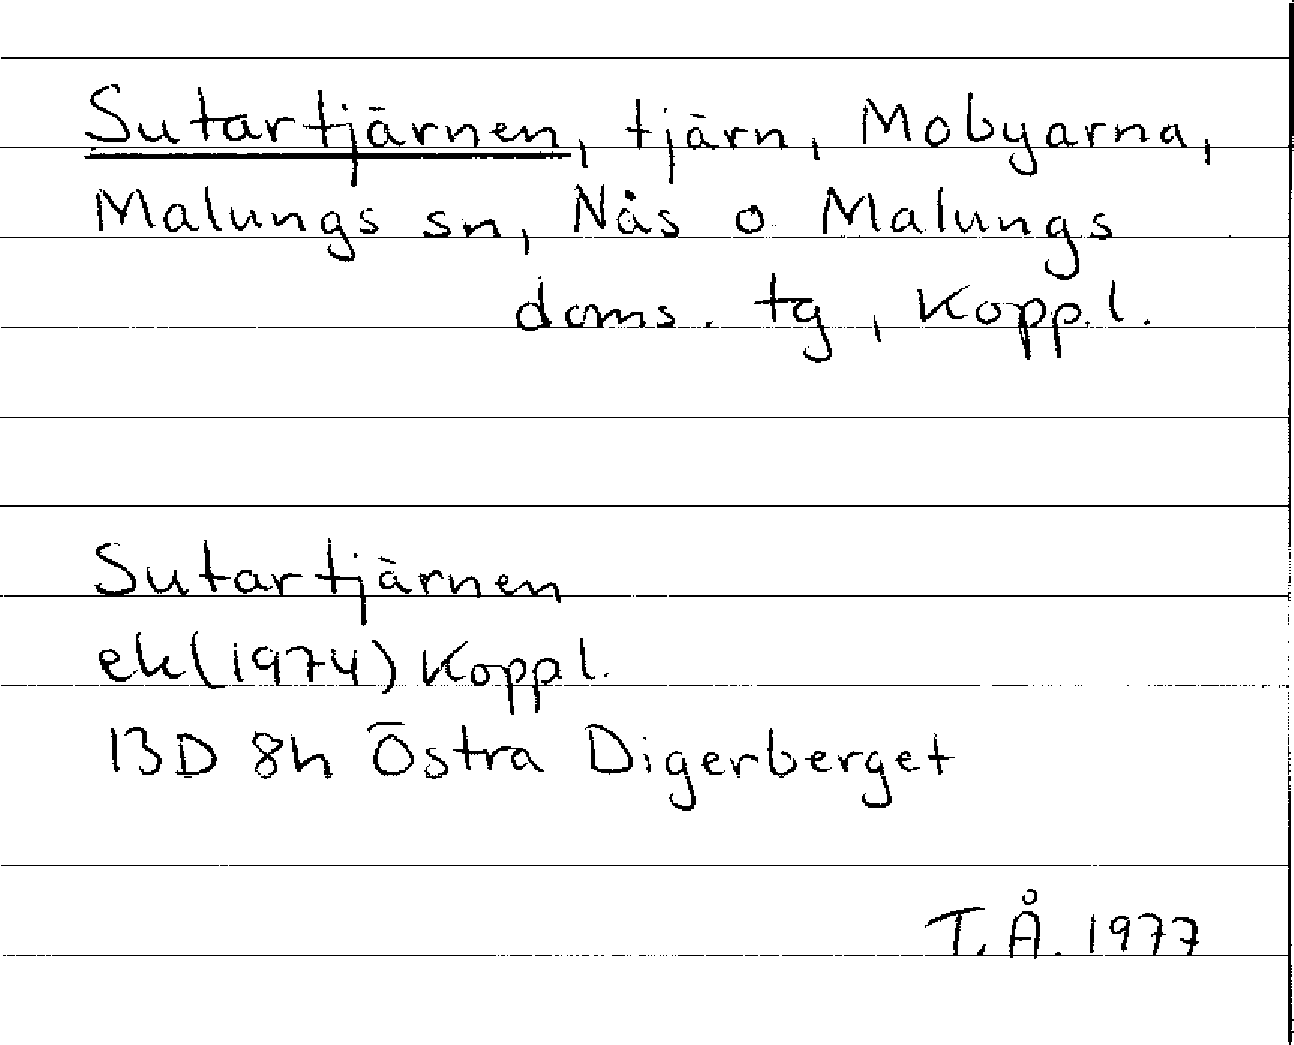 Sutartjärnen, tjärn, Mobyarna,
Malungs sn, Nås o Malungs
doms. tg, Kopp.l.
Sutartjärnen
ek(1974) Koppl.
13D 8h Östra Digerberget
T.Å. 1977